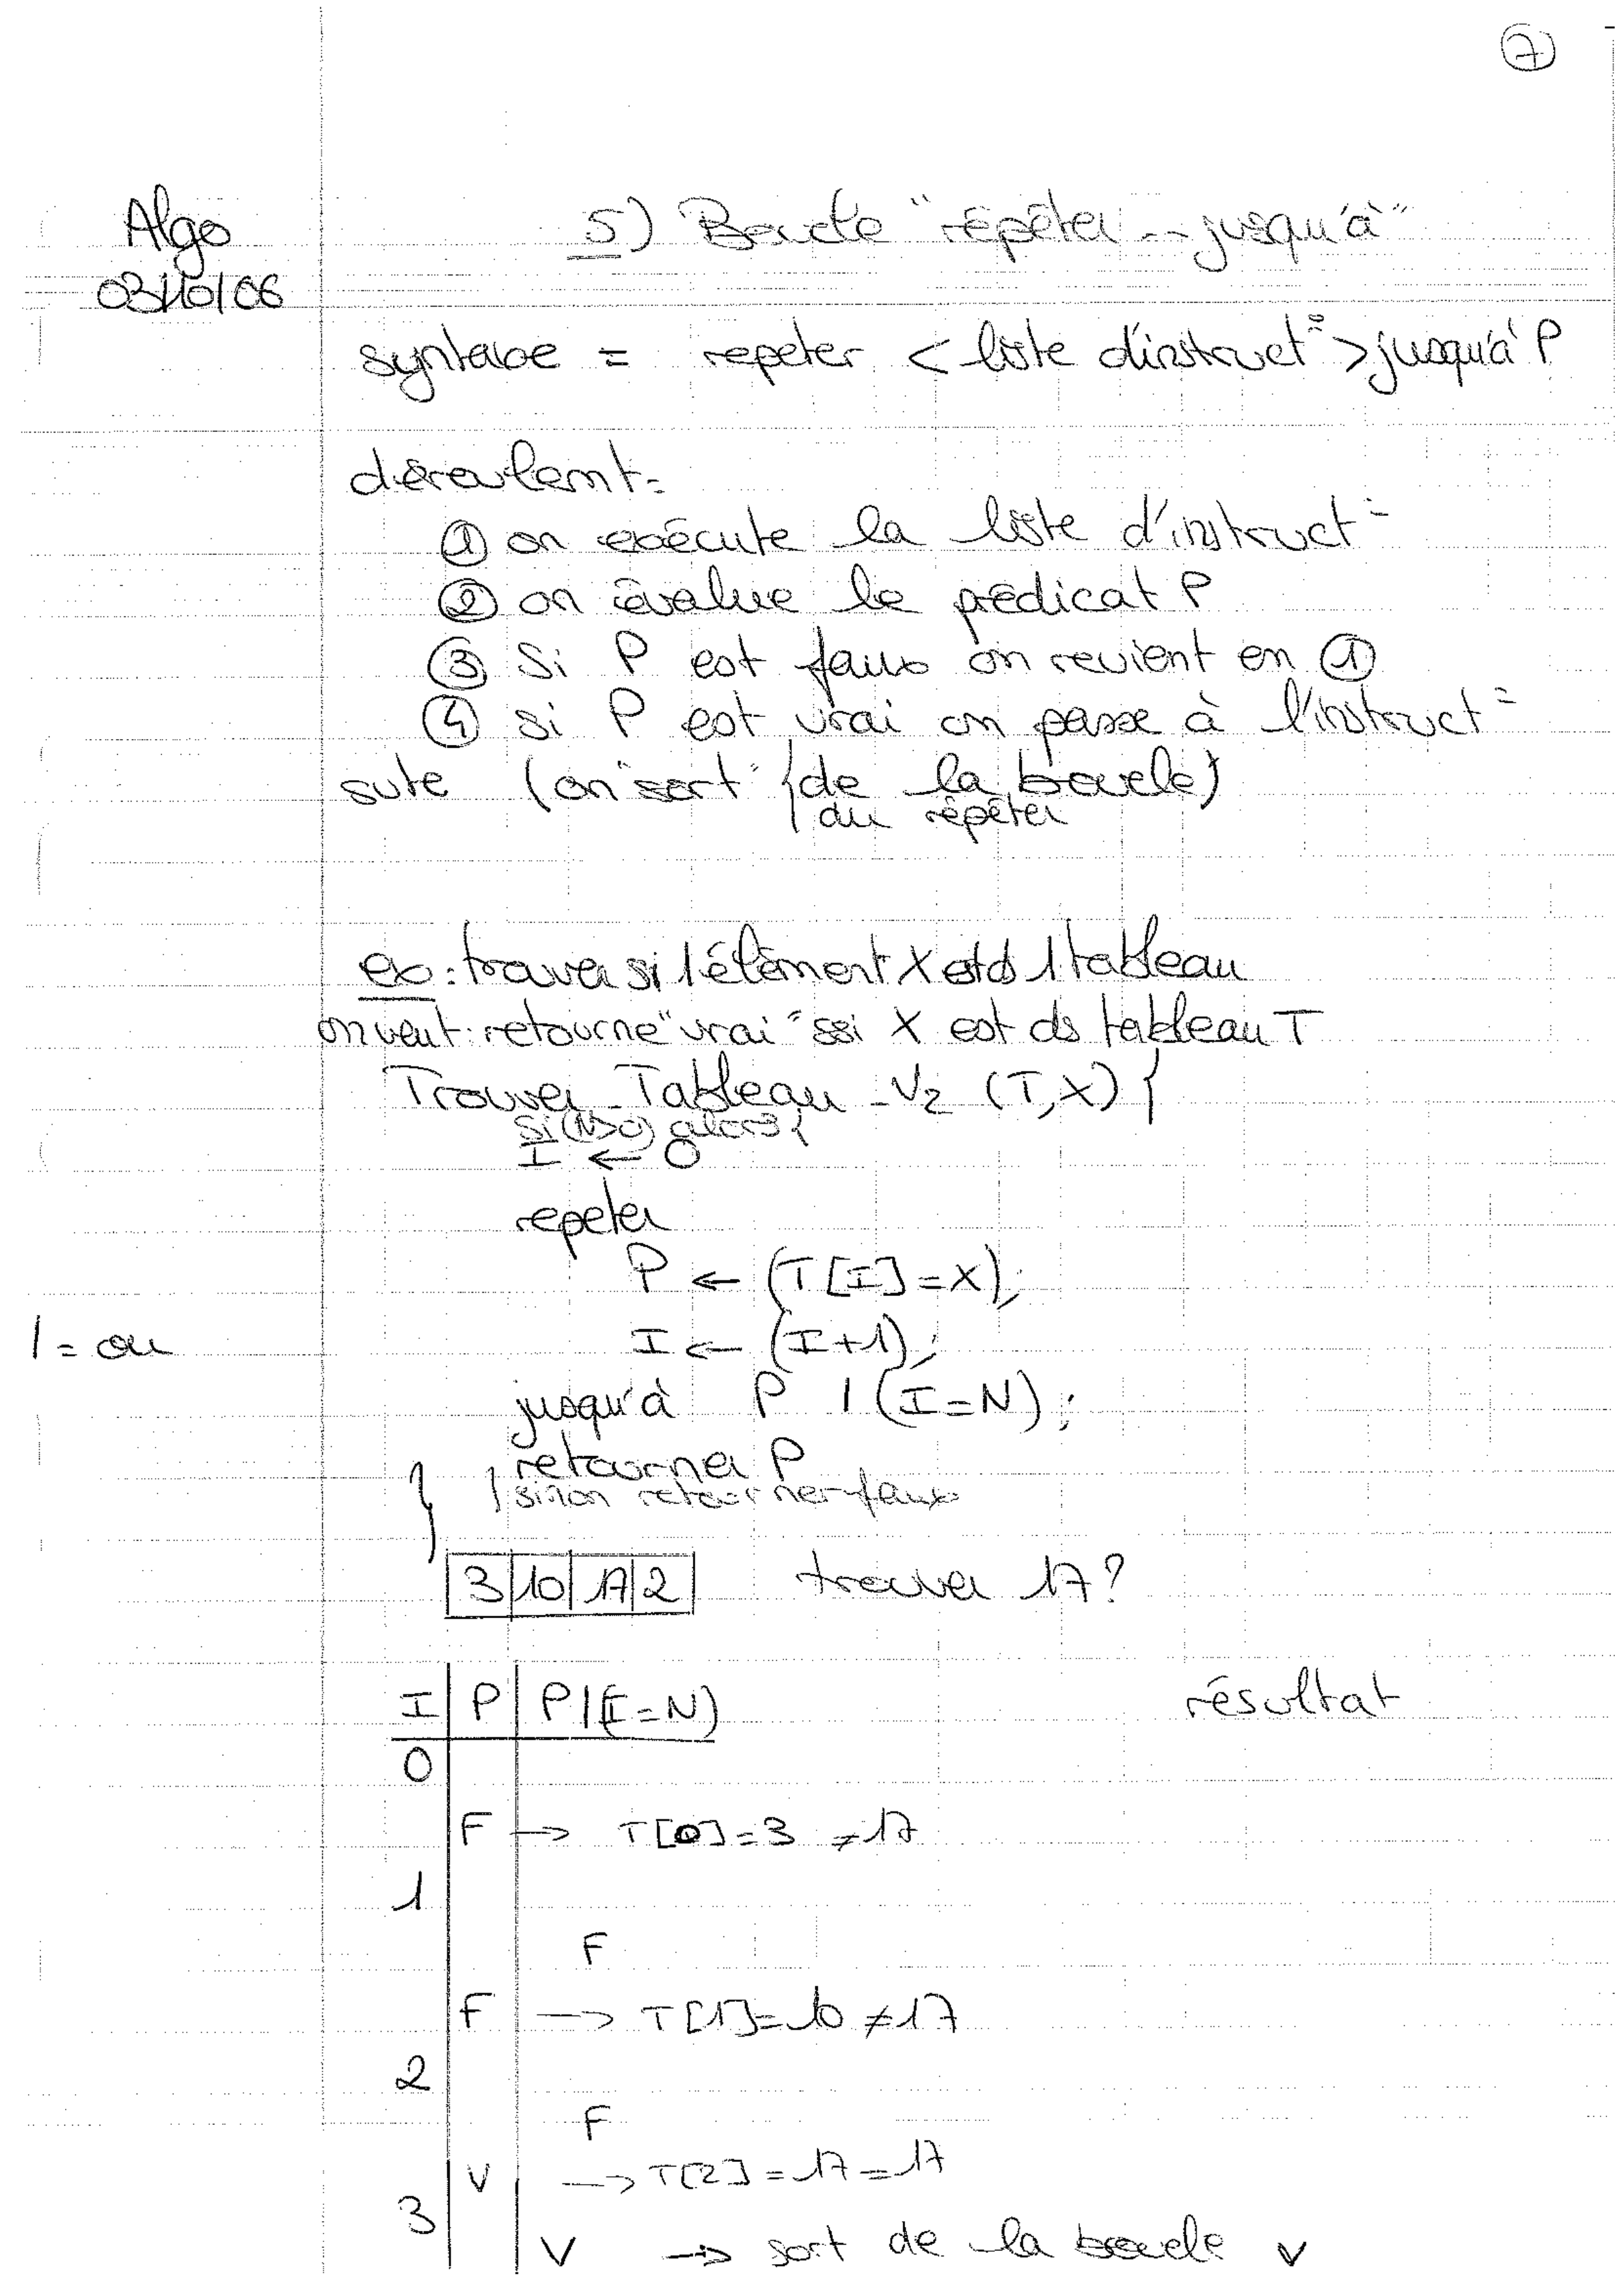 7
Algo
03/10/06
5) Boucle "répéter -- jusqu'à"
syntaxe = repeter < liste d'instruct° > jusqu'à P
déroulemt:
① on exécute la liste d'instruct°
② on évalue le prédicat P
③ Si P est faux on revient en ①
④ si P est vrai on passe à l'instruct°
suite (on "sort" de la boucle)
du répéter
ex: trouver si 1 élément X est ds 1 tableau
on veut: retourne "vrai" ssi X est ds tableau T
Trouver_Tableau_V2 (T,X) {
si (N>0) alors {
I ← 0
repeter
P ← (T[I]=X);
I ← (I+1);
| = ou
jusqu'à P | (I=N);
retourner P
} sinon retourner faux
}
3 | 10 | 17 | 2 trouver 17?
I | P | P|(I=N) résultat
0
F → T[0]=3 ≠17
1
F
F → T[1]=10 ≠17
2
F
V → T[2]=17=17
3
V → sort de la boucle V